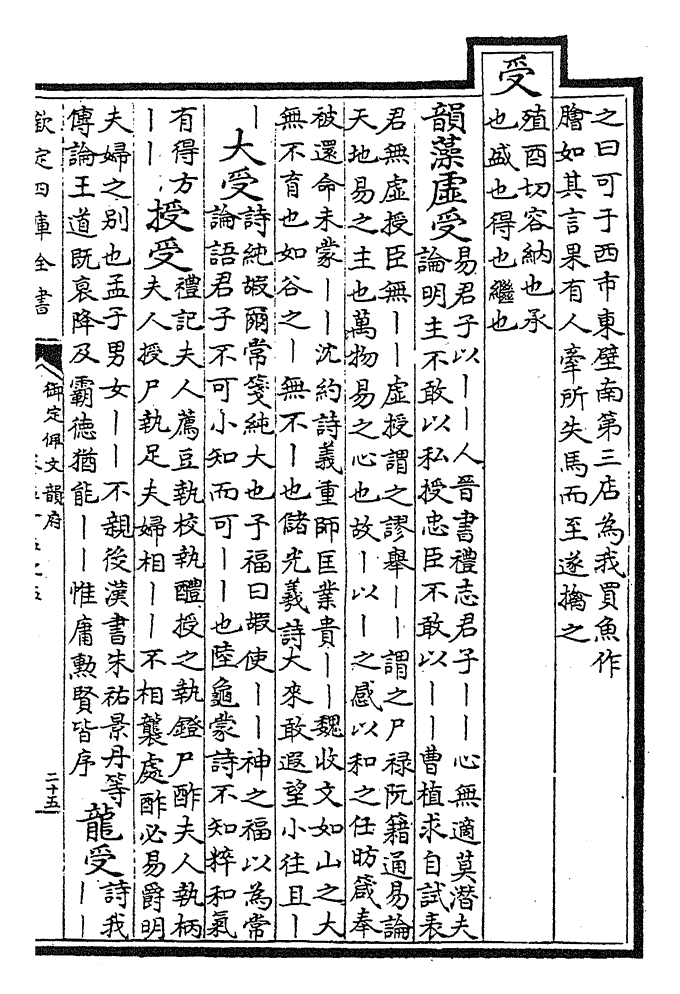 之曰可于西市東壁南第三店為我買魚作
膾如其言果有人牽所失馬而至遂擒之
受
殖酉切容納也承
也盛也得也繼也
韻藻虛受
易君子以｜｜人晉書禮志君子｜｜心無適莫潛夫
論明主不敢以私授忠臣不敢以｜｜曹植求自試表
君無虛授臣無｜｜虛授謂之謬舉｜｜謂之尸祿阮籍通易論
天地易之主也萬物易之心也故｜以｜之感以和之任昉箋奉
被還命未蒙｜｜沈約詩義重師匡業貴｜｜魏收文如山之大
無不育也如谷之｜無不｜也儲光羲詩大來敢遐望小往且｜
｜
大受
詩純嘏爾常箋純大也予福曰嘏使｜｜神之福以為常
論語君子不可小知而可｜｜也陸龜蒙詩不知粹和氣
有得方
｜｜
授受
禮記夫人薦豆執校執醴授之執鐙尸酢夫人執柄
夫人授尸執足夫婦相｜｜不相襲處酢必易爵明
夫婦之别也孟子男女｜｜不親後漢書朱祐景丹等
傳論王道既衰降及霸德猶能｜｜惟庸勲賢皆序
龍受
詩我
｜｜
欽定四庫全書
御定佩文韻府
二十五